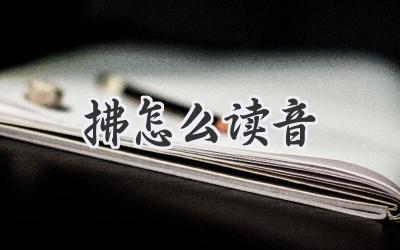 拂怎么读音